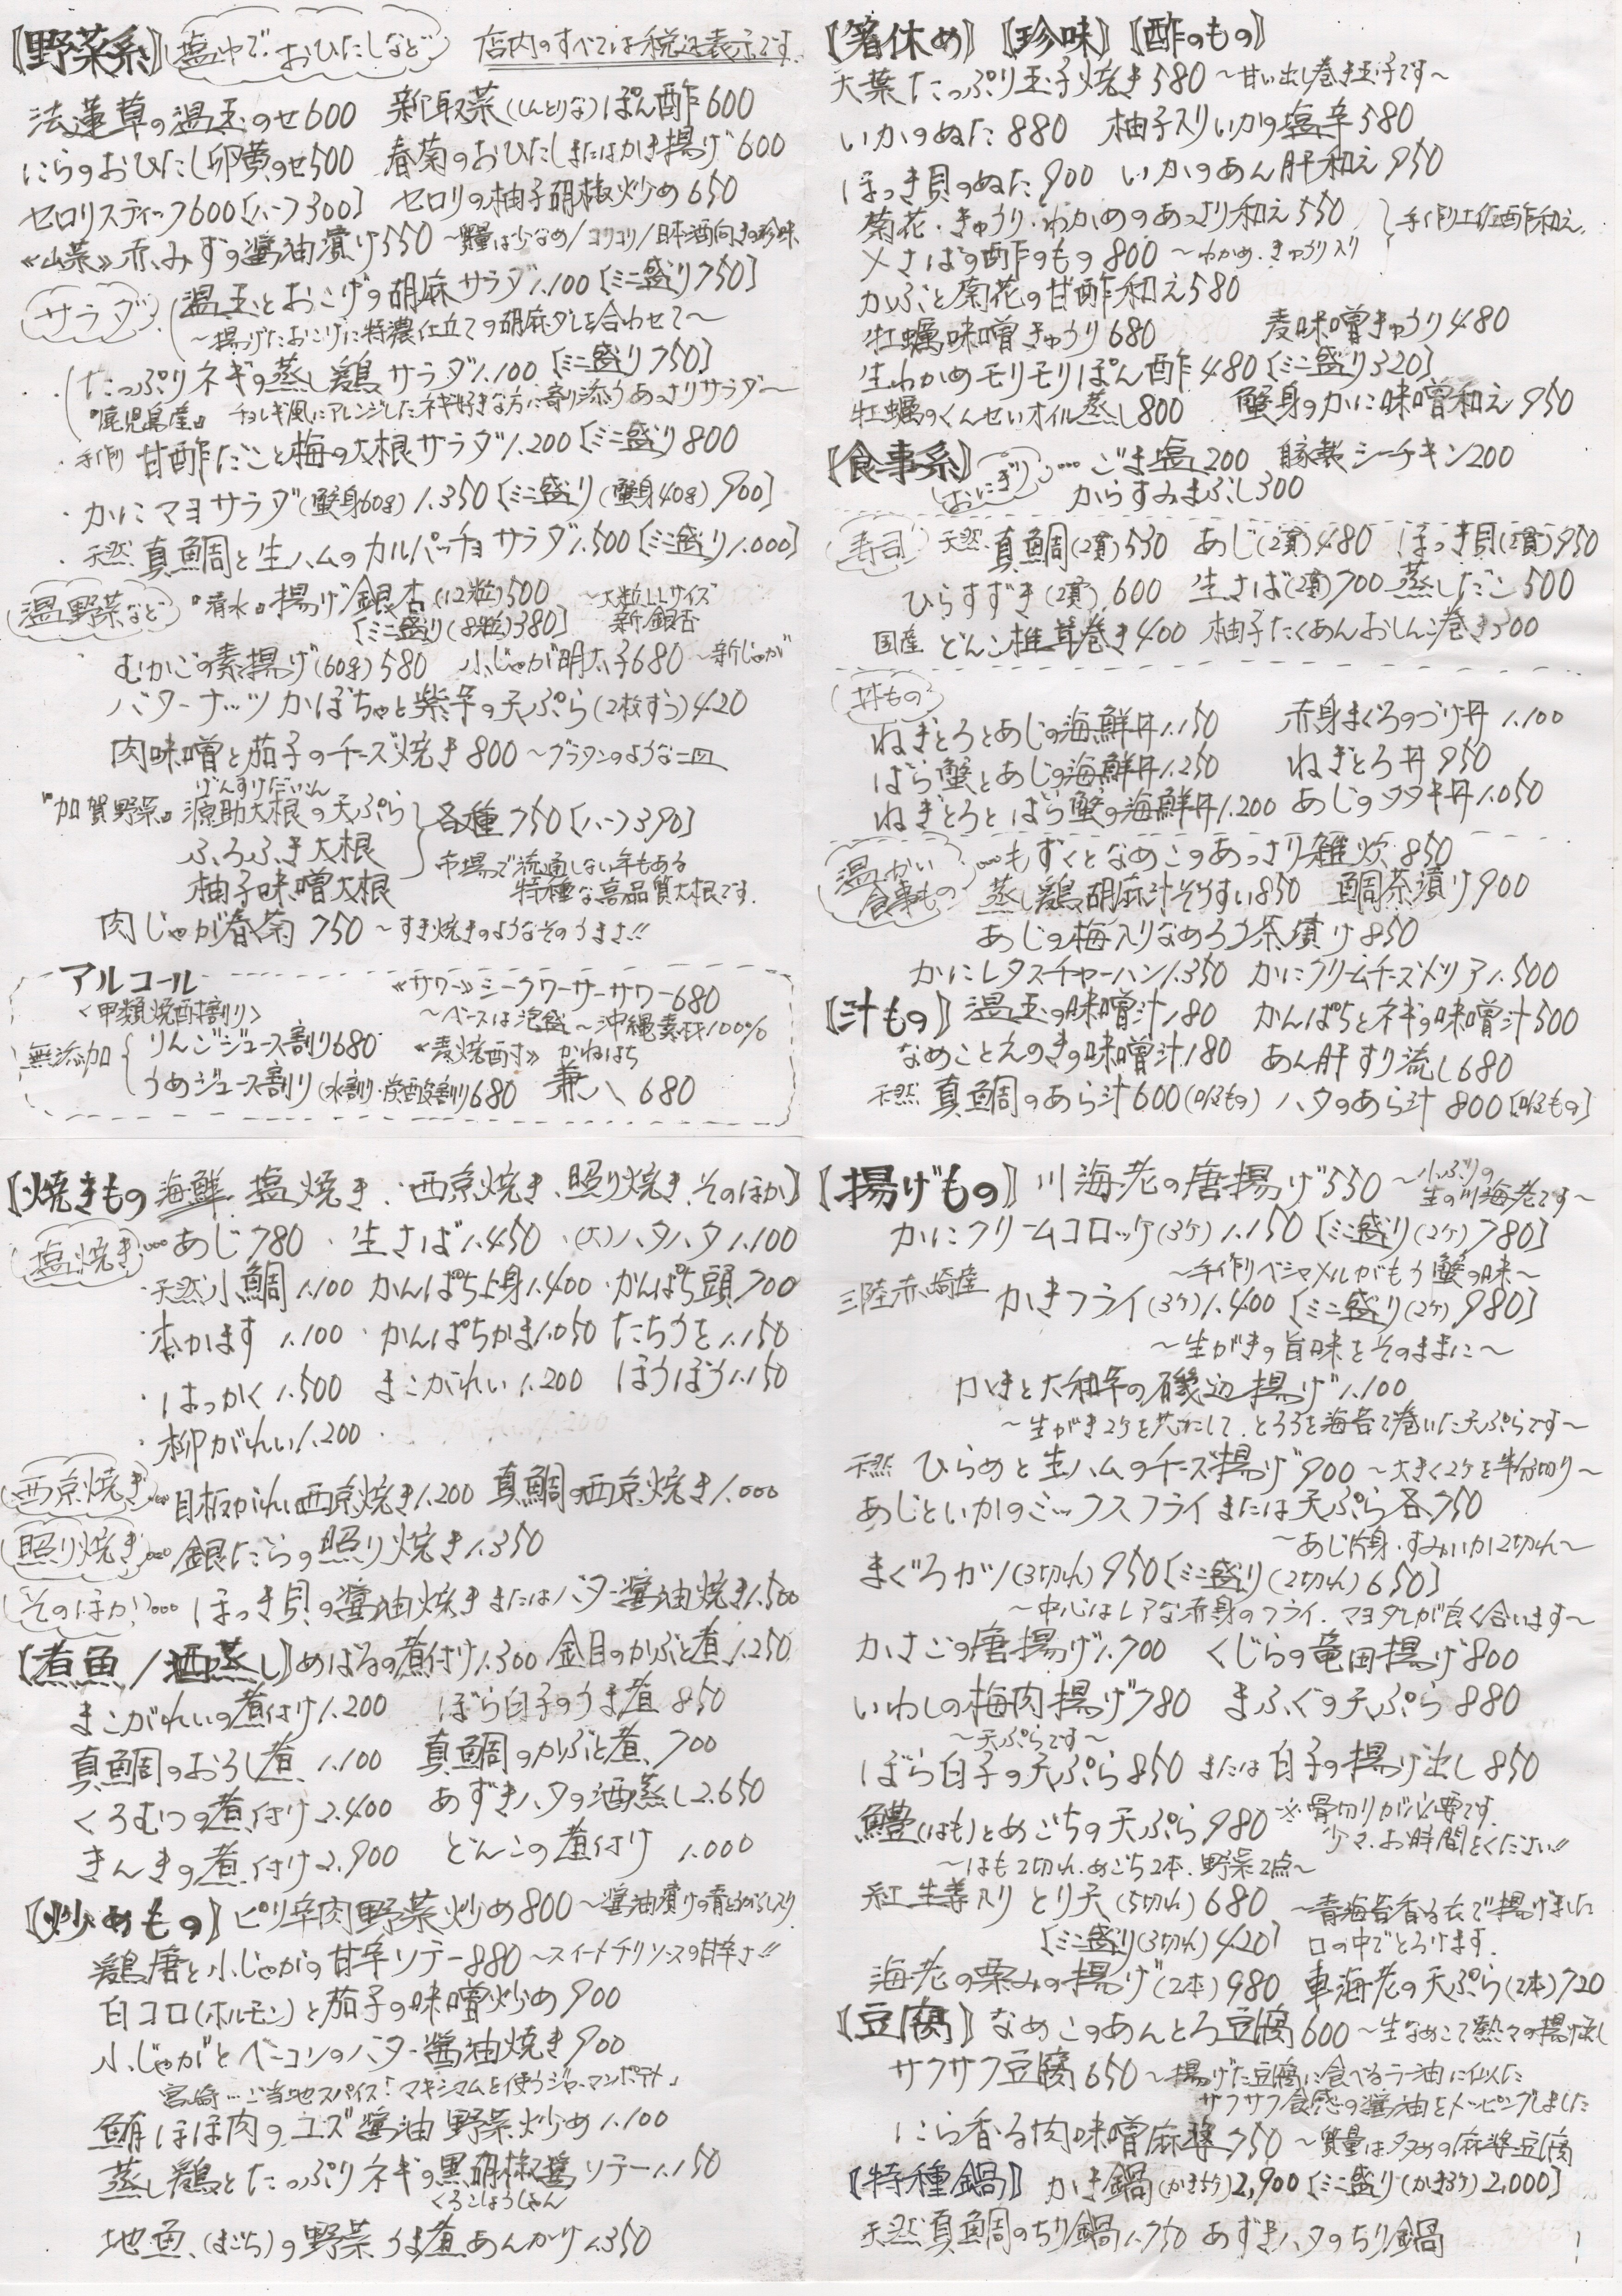 【野菜系】塩ゆで・おひたしなど 店内のすべては税込表示です.
法蓮草の温玉のせ600 新取菜(しんとりな)ぽん酢600
にらのおひたし卵黄のせ500 春菊のおひたしまたはかき揚げ600
セロリスティック600[ハーフ300] セロリの柚子胡椒炒め650
≪山菜≫赤みずの醤油漬け550 〜質量は少なめ/コリコリ/日本酒向きの珍味
サラダ 温玉とおこげの胡麻サラダ1.100[ミニ盛り750]
〜揚げたおこげに特濃仕立ての胡麻ダレを合わせて〜
・たっぷりネギの蒸し鶏サラダ1.100[ミニ盛り750]
『鹿児島産』 チョレギ風にアレンジしたネギ好きな方に寄り添うあっさりサラダ〜
・手作り 甘酢だこと梅の大根サラダ1.200[ミニ盛り800
・かにマヨサラダ(蟹身60g)1.350[ミニ盛り(蟹身40g)900]
・天然 真鯛と生ハムのカルパッチョサラダ1.500[ミニ盛り1.000]
温野菜など 『清水』揚げ銀杏(12粒)500 〜大粒LLサイズ
[ミニ盛り(8粒)380] 新銀杏
むかごの素揚げ(60g)580 小じゃが明太子680〜新じゃが
バターナッツかぼちゃと紫芋の天ぷら(2枚ずつ)420
肉味噌と茄子のチーズ焼き800〜グラタンのような一皿
げんすけだいこん
『加賀野菜』源助大根の天ぷら
ふろふき大根
柚子味噌大根
各種750[ハーフ390]
市場で流通しない年もある
特種な高品質大根です.
肉じゃが春菊750〜すき焼きのようなそのうまさ!!
アルコール
<甲類焼酎割り>
無添加 りんごジュース割り680
うめジュース割り(水割り・炭酸割り680
≪サワー≫シークワーサーサワー680
〜ベースは泡盛〜沖縄素材100%
≪麦焼酎≫ かねはち
兼八680
【箸休め】【珍味】【酢のもの】
大葉たっぷり玉子焼き580〜甘い出し巻き玉子です〜
いかのぬた880 柚子入りいかの塩辛580
ほっき貝のぬた900 いかのあん肝和え950
菊花・きゅうり・わかめのあっさり和え550
〆さばの酢のもの800〜わかめ・きゅうり入り
手作り土佐酢和え.
かぶと菊花の甘酢和え580
牡蠣味噌きゅうり680 麦味噌きゅうり480
生わかめモリモリぽん酢480[ミニ盛り320]
牡蠣のくんせいオイル蒸し800 蟹身のかに味噌和え950
【食事系】おにぎり…ごま塩200 豚製シーチキン200
からすみまぶし300
寿司 天然 真鯛(2貫)530 あじ(2貫)480 ほっき貝(2貫)950
ひらすずき(2貫)600 生さば(2貫)700 蒸しだこ500
国産 どんこ椎茸巻き400 柚子たくあんおしんこ巻き300
丼もの
ねぎとろとあじの海鮮丼1.150 赤身まぐろのづけ丼1.100
ばら蟹とあじの海鮮丼1.250 ねぎとろ丼950
ねぎとろとばら蟹の海鮮丼1.200 あじのタタキ丼1.050
温かい食事もの …もずくとなめこのあっさり雑炊850
蒸し鶏胡麻汁ぞうすい850 鯛茶漬け900
あじの梅入りなめろう茶漬け850
かにレタスチャーハン1.350 かにクリームチーズドリア1.500
【汁もの】温玉の味噌汁180 かんぱちとネギの味噌汁500
なめことえのきの味噌汁180 あん肝すり流し680
天然 真鯛のあら汁600(吸もの) ハタのあら汁800[吸もの]
【焼きもの 海鮮 塩焼き・西京焼き・照り焼き・そのほか】
塩焼き…あじ780・生さば1.450・(大)ハタハタ1.100
・天然小鯛1.100 かんぱち上身1.400・かんぱち頭700
・本かます1.100・かんぱちかま1.050 たちうを1.150
・はっかく1.500 まこがれい1.200 ほうぼう1.150
・柳がれい1.200・
西京焼き…目板がれい西京焼き1.200 真鯛の西京焼き1.000
照り焼き…銀だらの照り焼き1.350
そのほか…ほっき貝の醤油焼きまたはバター醤油焼き1.500
【煮魚/酒蒸し】めばるの煮付け1.300 金目のかぶと煮1.250
まこがれいの煮付け1.200 ぼら白子のうま煮850
真鯛のおろし煮1.100 真鯛のかぶと煮700
くろむつの煮付け2.400 あずきハタの酒蒸し2.650
きんきの煮付け2.900 どんこの煮付け1.000
【炒めもの】ピリ辛肉野菜炒め800〜醤油漬けの青とうがらし入り
鶏唐と小じゃがの甘辛ソテー880〜スイートチリソースの甘辛さ!!
白コロ(ホルモン)と茄子の味噌炒め900
小じゃがとベーコンのバター醤油焼き900
宮崎…ご当地スパイス「マキシマムを使うジャーマンポテト」
鮪ほほ肉のユズ醤油野菜炒め1.100
蒸し鶏とたっぷりネギの黒胡椒醤ソテー1.150
くろこしょうじゃん
地魚(まごち)の野菜うま煮あんかけ1.350
【揚げもの】川海老の唐揚げ550〜小ぶりの
生の川海老です〜
かにクリームコロッケ(3ケ)1.150[ミニ盛り(2ケ)780]
〜手作りベシャメルがもう蟹の味〜
三陸赤崎産 かきフライ(3ケ)1.400[ミニ盛り(2ケ)980]
〜生がきの旨味をそのままに〜
かきと大和芋の磯辺揚げ1.100
〜生がき2ケを芯にして、とろろを海苔で巻いた天ぷらです〜
天然 ひらめと生ハムのチーズ揚げ900〜大きく2ケを半分切り〜
あじといかのミックスフライまたは天ぷら各750
〜あじ片身・すみいか2切れ〜
まぐろカツ(3切れ)950[ミニ盛り(2切れ)650]
〜中心はレアな赤身のフライ.マヨダレが良く合います〜
かさごの唐揚げ1.700 くじらの竜田揚げ800
いわしの梅肉揚げ780 まふぐの天ぷら880
〜天ぷらです〜
ぼら白子の天ぷら850または白子の揚げ出し850
鱧(はも)とめごちの天ぷら980 ※骨切りが必要です.
少々お時間をください!!
〜はも2切れ.めごち2本.野菜2点〜
紅生姜入り とり天(5切れ)680 〜青海苔香る衣で揚げました
[ミニ盛り(3切れ)420] 口の中でとろけます.
海老の栗みの揚げ(2本)980 車海老の天ぷら(2本)720
【豆腐】なめこのあんとろ豆腐600〜生なめこで熱々の揚げ出し
サクサク豆腐650〜揚げた豆腐に食べるラー油に似た
サクサク食感の醤油をトッピングしました
にら香る肉味噌麻婆750〜質量は多めの麻婆豆腐
【特種鍋】かき鍋(かき5ケ)2,900[ミニ盛り(かき3ケ)2,000]
天然真鯛のちり鍋1.750 あずきハタのちり鍋